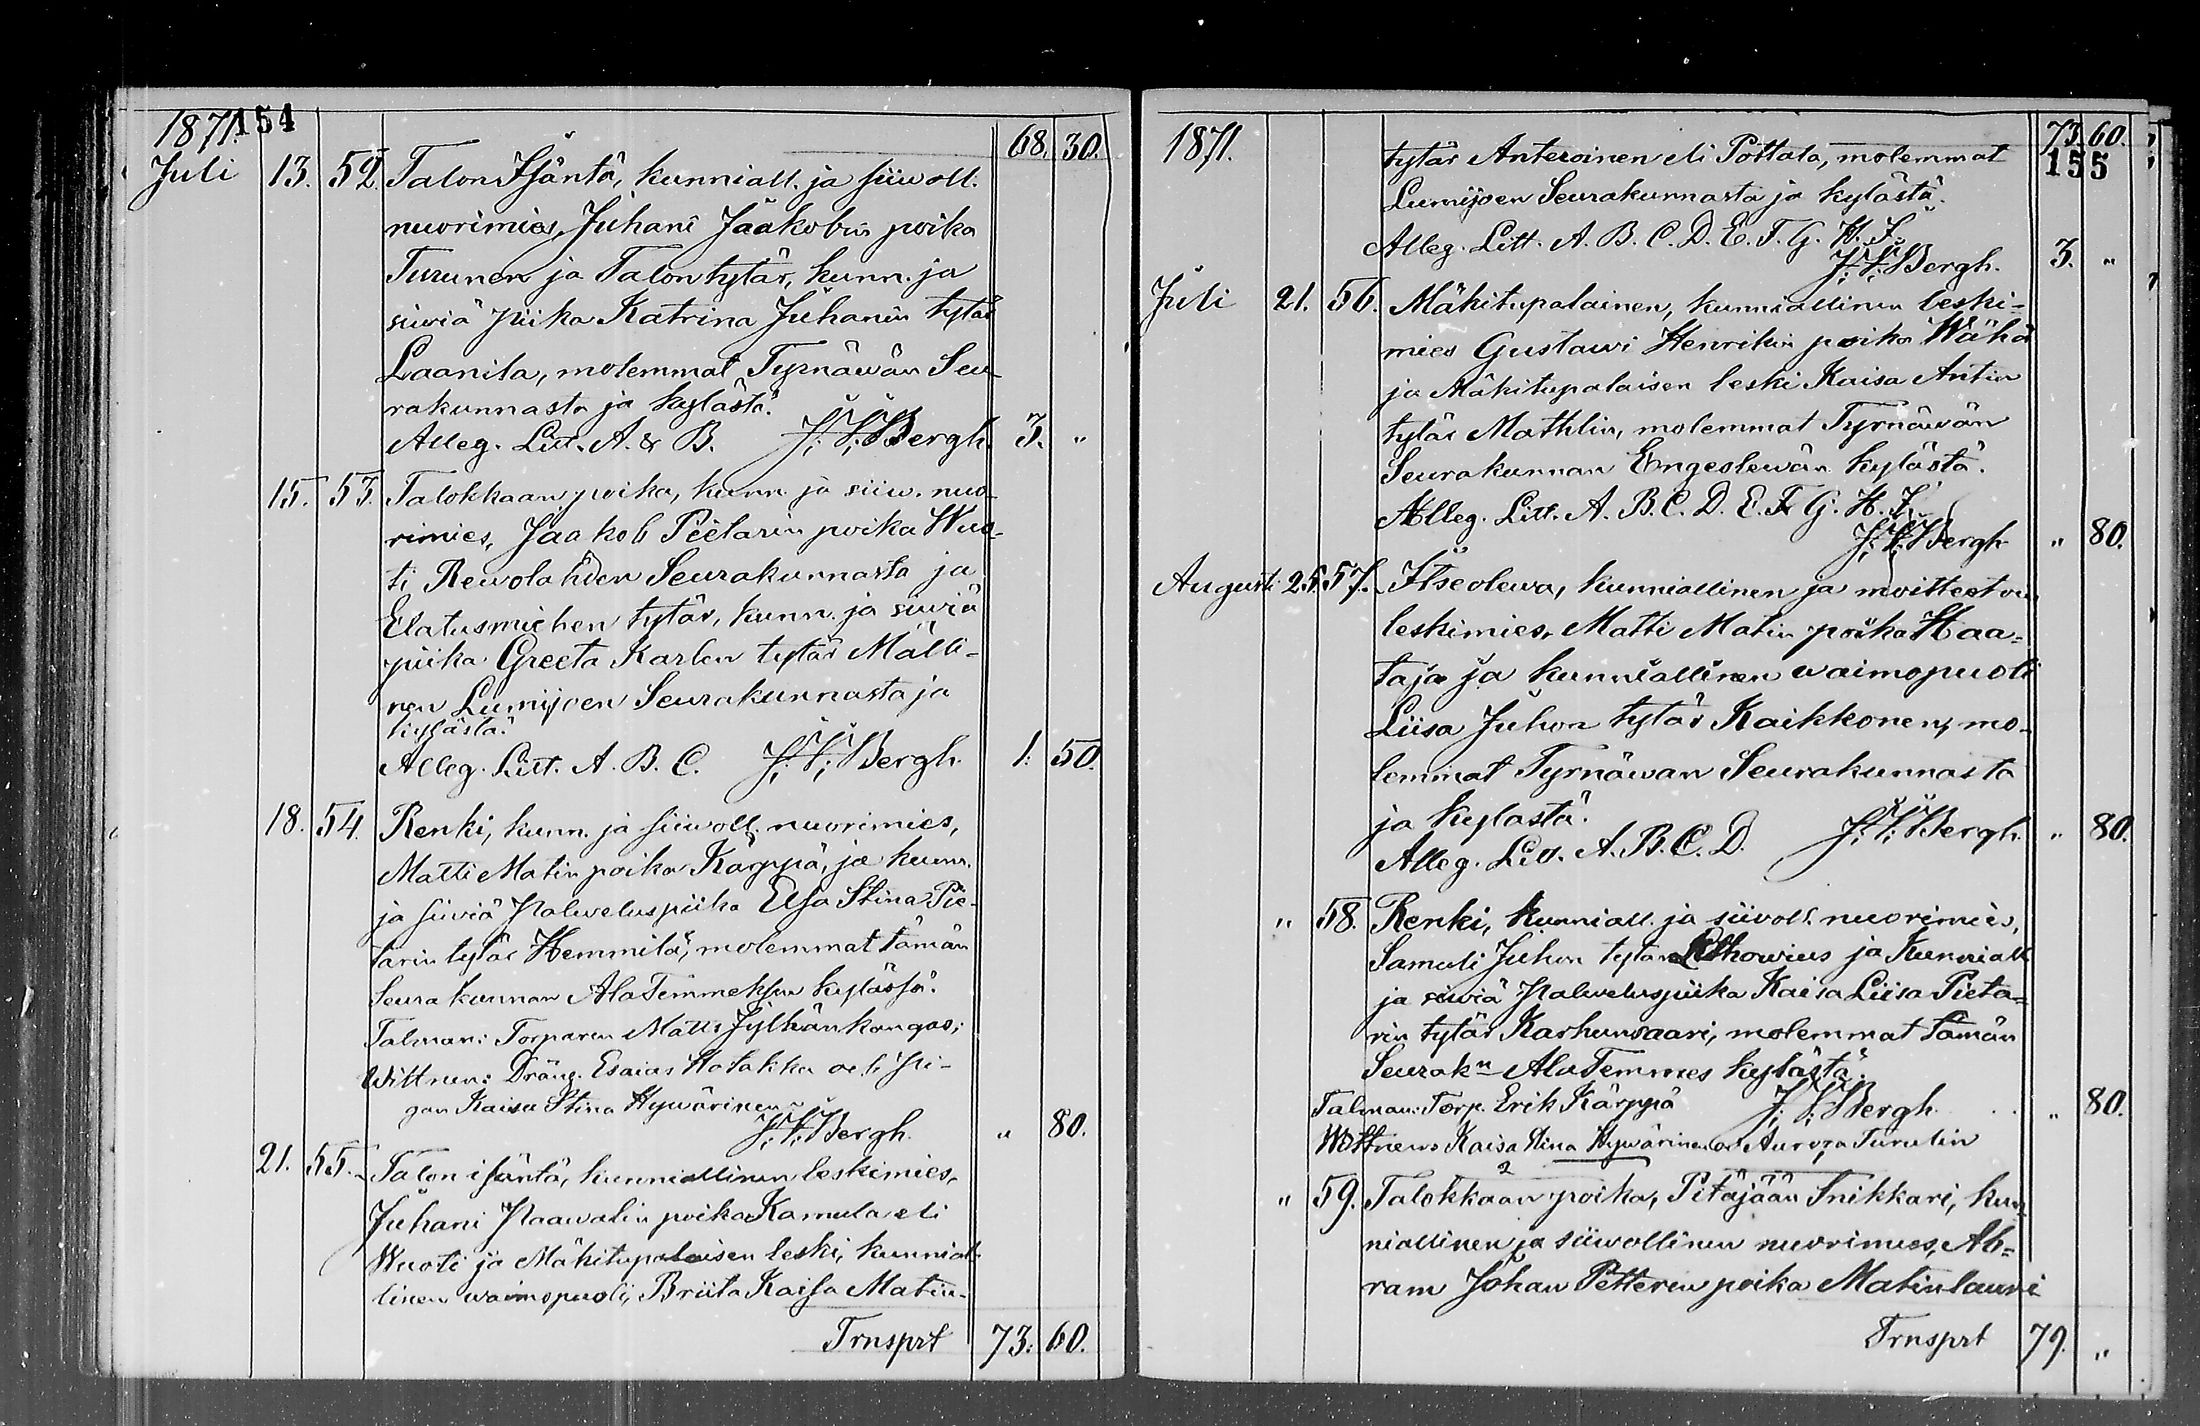 1871. 154
68. 30.
Juli 13. 52. Talon Isäntä, kunniall. ja siiwoll.
nuorimies, Juhani Jaakobin poika
Turunen ja Talontytär, kunn. ja
siwiä piika Katrina Juhanin tytär
Laanila, molemmat Tyrnäwän Seu-
rakunnasta ja kylästä.
Alleg. Litt. A. & B. J. V. Bergh. 3. "
15. 53. Talokkaan poika, kunn. ja siiw. nuo-
rimies, Jaakob Pietarin poika Wuo-
ti Rewolahden Seurakunnasta ja
Elatusmiehen tytär, kunn. ja siwiä
piika Greeta Karlen tytär Mälli-
nen Lumijoen Seurakunnasta ja
kylästä.
Alleg. Litt. A. B. C. J. V. Bergh. 1. 50.
18. 54. Renki, kunn. ja siiwoll. nuorimies,
Matti Matin poika Kärppä, ja kunn.
ja siiviä Palveluspiika Elsa Stina Pie-
tarin tytär Hemmilä, molemmat tämän
Seurakunnan AlaTemmeksen kylässä.
Talman: Torparen Matts Jylhänkangas;
Wittnen: Dräng. Esaias Hatakka och Pi-
gan Kaisa Stina Hywärinen
J. V. Bergh. " 80.
21. 55. Talon isäntä, kunniallinen leskimies,
Juhani Paawalin poika Kamula eli
Wuoti ja Mäkitupalaisen leski, kunnial-
linen waimopuoli, Briita Kaisa Matin-
Trnsprt 73. 60.
1871. 73. 60.
tytär Anteroinen eli Pottala, molemmat
155
Lumijoen Seurakunnasta ja kylästä.
Alleg. Litt. A. B. C. D. E. F. G. H. I.
J. V. Bergh. 3. "
Juli 21. 56. Mäkitupalainen, kunniallinen leski-
mies Gustawi Henrikin poika Wähä
ja Mäkitupalaisen leski Kaisa Antin
tytär Mathlin, molemmat Tyrnäwän
Seurakunnan Engeslewän kylästä.
Alleg. Litt. A. B. C. D. E. F. G. H. I.
J. V. Bergh " 80.
Augusti 25. 57. Itseolewa, kunniallinen ja moitteetoin
leskimies, Matti Matin poika Haa-
taja ja kunniallinen waimopuoli
Liisa Juhon tytär Kaikkonen, mo-
lemmat Tyrnäwan Seurakunnasta
ja kylastä.
Alleg. Litt. A. B. C. D. J. V. Bergh. " 80.
" 58. Renki, kunniall. ja siivoll. nuorimies,
Samuli Juhon tytär Lithowius ja Kunniall
ja siwiä Palveluspiika Kaisa Liisa Pieta-
rin tytär Karhunsaari, molemmat tämän
Seurakn AlaTemmes kylästä.
Talman: Torp. Erik Kärppä J. V. Bergh. " 80.
Wittnen: Kaisa Stina Hywärinen och Aurora Turulin
" 59. Talokkaan poika, Pitäjään Snikkari, kun-
niallinen ja siiwollinen nuorimies, Ab-
ram Johan Petterin poika Matinlauri
Trnsprt 79. "